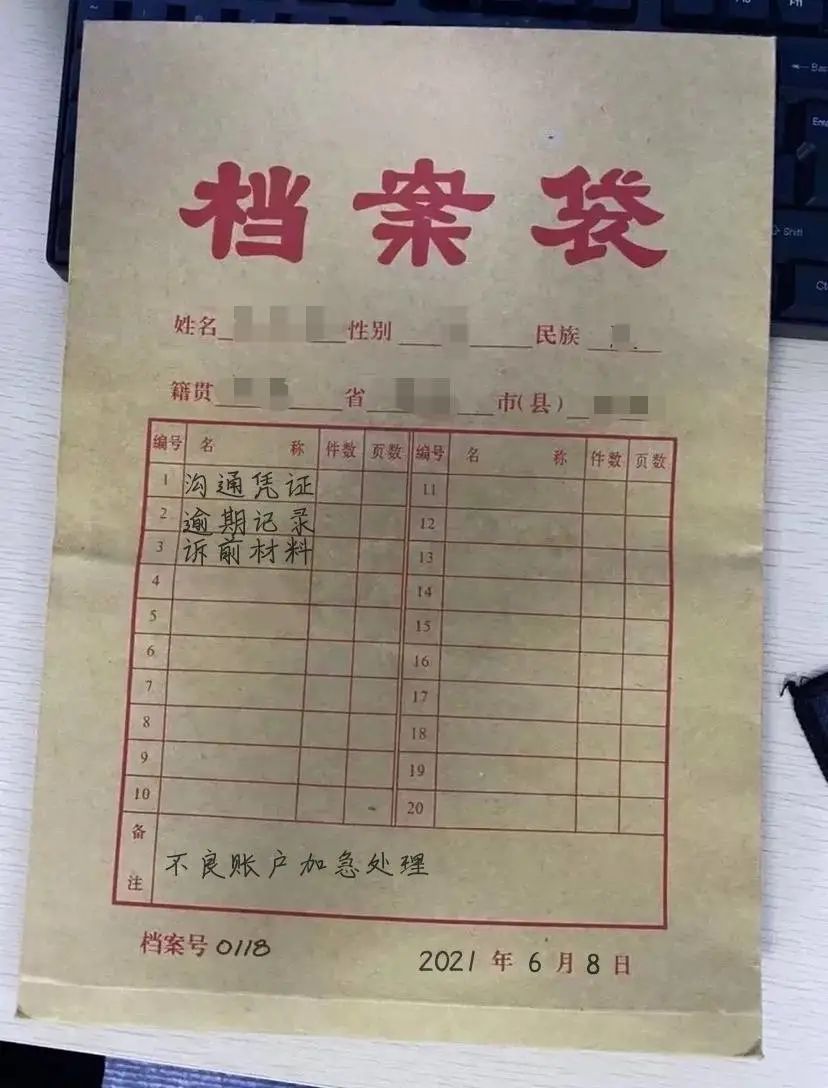 档案袋
姓名 性别 民族
籍贯 省 市(县)
编号 名称 件数 页数 编号 名称 件数 页数
1 沟通凭证 11
2 逾期记录 12
3 诉前材料 13
4 14
5 15
6 16
7 17
8 18
9 19
10 20
备注 不良账户加急处理
档案号 0118 2021 年 6 月 8 日
Shift